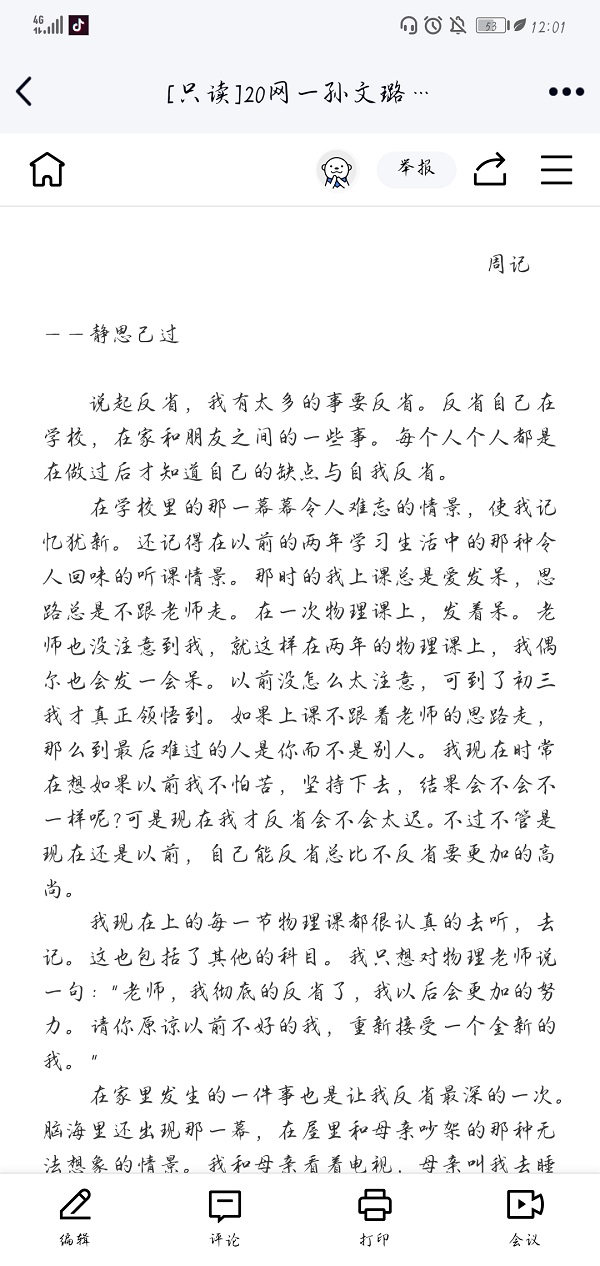 4G
53
12:01
[只读]20网一孙文璐…
举报
周记
——静思己过
说起反省，我有太多的事要反省。反省自己在
学校，在家和朋友之间的一些事。每个人个人都是
在做过后才知道自己的缺点与自我反省。
在学校里的那一幕幕令人难忘的情景，使我记
忆犹新。还记得在以前的两年学习生活中的那种令
人回味的听课情景。那时的我上课总是爱发呆，思
路总是不跟老师走。在一次物理课上，发着呆。老
师也没注意到我，就这样在两年的物理课上，我偶
尔也会发一会呆。以前没怎么太注意，可到了初三
我才真正领悟到。如果上课不跟着老师的思路走，
那么到最后难过的人是你而不是别人。我现在时常
在想如果以前我不怕苦，坚持下去，结果会不会不
一样呢?可是现在我才反省会不会太迟。不过不管是
现在还是以前，自己能反省总比不反省要更加的高
尚。
我现在上的每一节物理课都很认真的去听，去
记。这也包括了其他的科目。我只想对物理老师说
一句："老师，我彻底的反省了，我以后会更加的努
力。请你原谅以前不好的我，重新接受一个全新的
我。"
在家里发生的一件事也是让我反省最深的一次。
脑海里还出现那一幕，在屋里和母亲吵架的那种无
法想象的情景。我和母亲看着电视，母亲叫我去睡
编辑
评论
打印
会议